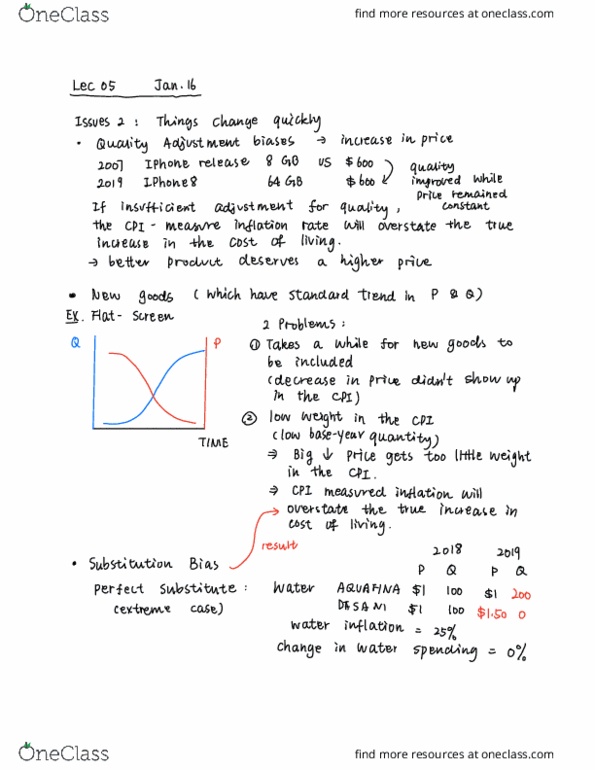 OneClass
find more resources at oneclass.com
Lec 05 Jan. 16
Issues 2 : Things change quickly
• Quality Adjustment biases → increase in price
2007 IPhone release 8 GB US $600
2019 IPhone 8 64 GB $600
quality
improved while
price remained
constant
If insufficient adjustment for quality,
the CPI - measure inflation rate will overstate the true
increase in the cost of living.
→ better product deserves a higher price
• New goods (which have standard trend in P & Q)
Ex. Flat-Screen
Q P
TIME
2 Problems:
① Takes a while for new goods to
be included
(decrease in price didn't show up
in the CPI)
② low weight in the CPI
(low base-year quantity)
⇒ Big ↓ price gets too little weight
in the CPI.
⇒ CPI measured inflation will
overstate the true increase in
cost of living.
result
• Substitution Bias
perfect substitute :
(extreme case)
2018 2019
P Q P Q
Water AQUAFINA $1 100 $1 200
DASANI $1 100 $1.50 0
water inflation = 25%
change in water spending = 0%
OneClass
find more resources at oneclass.com